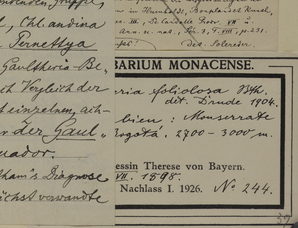 Chl. andina
Pernettya
Gaultheria Be-
Vergleich der
einzelnen, aih-
der Gaul-
uador.
ham's Diagnose
ächst verwandte
in Humboldt, Bonpl. et Kunth,
De Candolle Prodr. VII
p. 231.
det. Solereder.
BARIUM MONACENSE.
eria foliolosa Bth.
det. Drude 1904.
bien: Monserrate
Bogotá. 2700 - 3000 m.
essin Therese von Bayern.
VII. 1898.
Nachlass I. 1926. No 244.